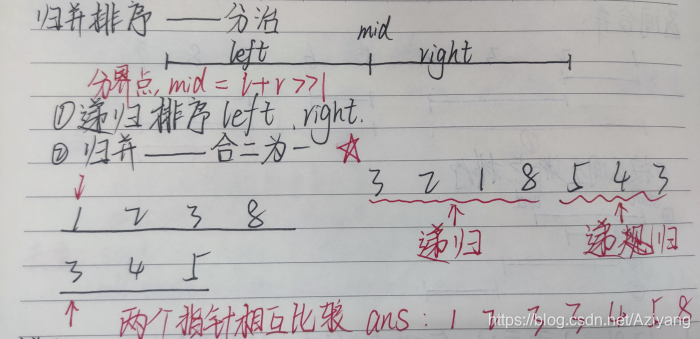 归并排序 —— 分治
left mid right
分界点, mid = l+r >> 1
①递归排序 left, right.
② 归并 —— 合二为一 ☆
3 2 1 8 5 4 3
1 2 3 8
递归 递归
3 4 5
两个指针相互比较 ans: 1 2 3 3 4 5 8
https://blog.csdn.net/Aziyang